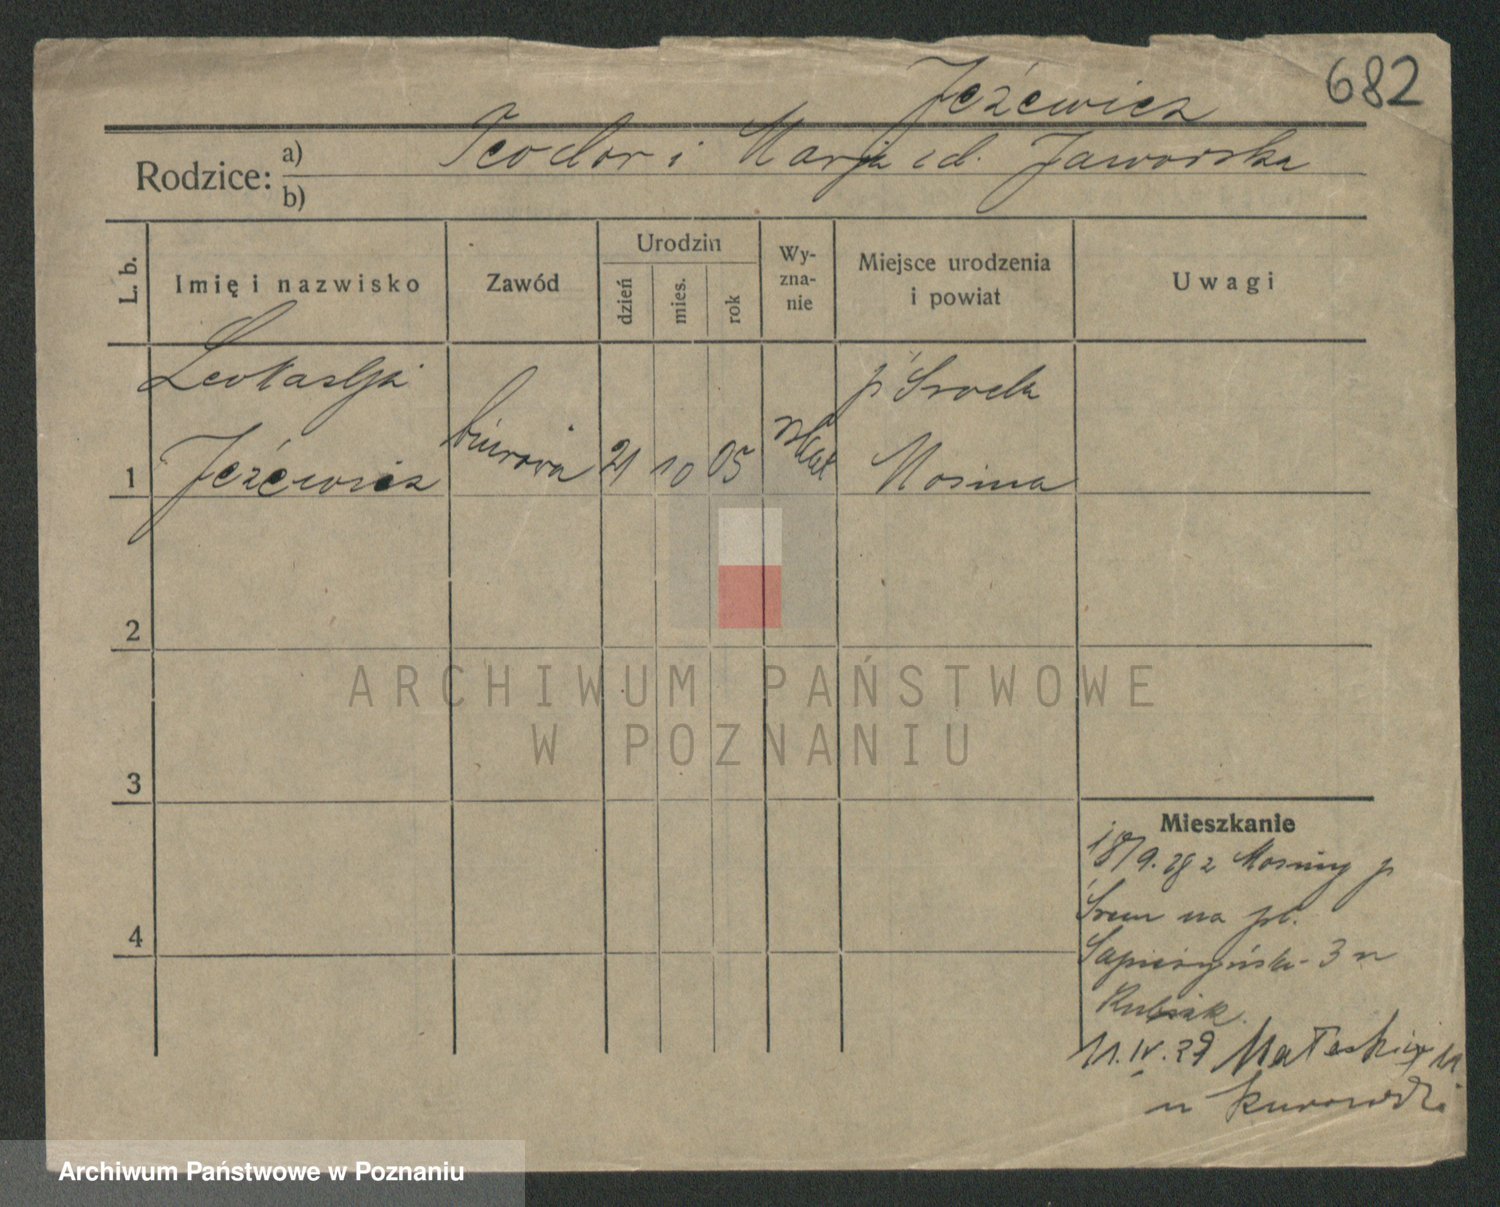 682
Jeżewicz
Rodzice: a) Teodor i Marja zd. Jaworska
b)
L. b. Imię i nazwisko Zawód Urodzin dzień mies. rok Wyznanie Miejsce urodzenia i powiat Uwagi
Leokadja p. Środa
1 Jeżewicz biurowa 21 10 05 rzkat Mosina
2
3
4
Mieszkanie
18/9.28 z Mosiny p
Śrem na pl.
Sapieżyńsk- 3 u
Rubiak.
11.IV.29 Małeckiego 11
u
ARCHIWUM PAŃSTWOWE
W POZNANIU
Archiwum Państwowe w Poznaniu